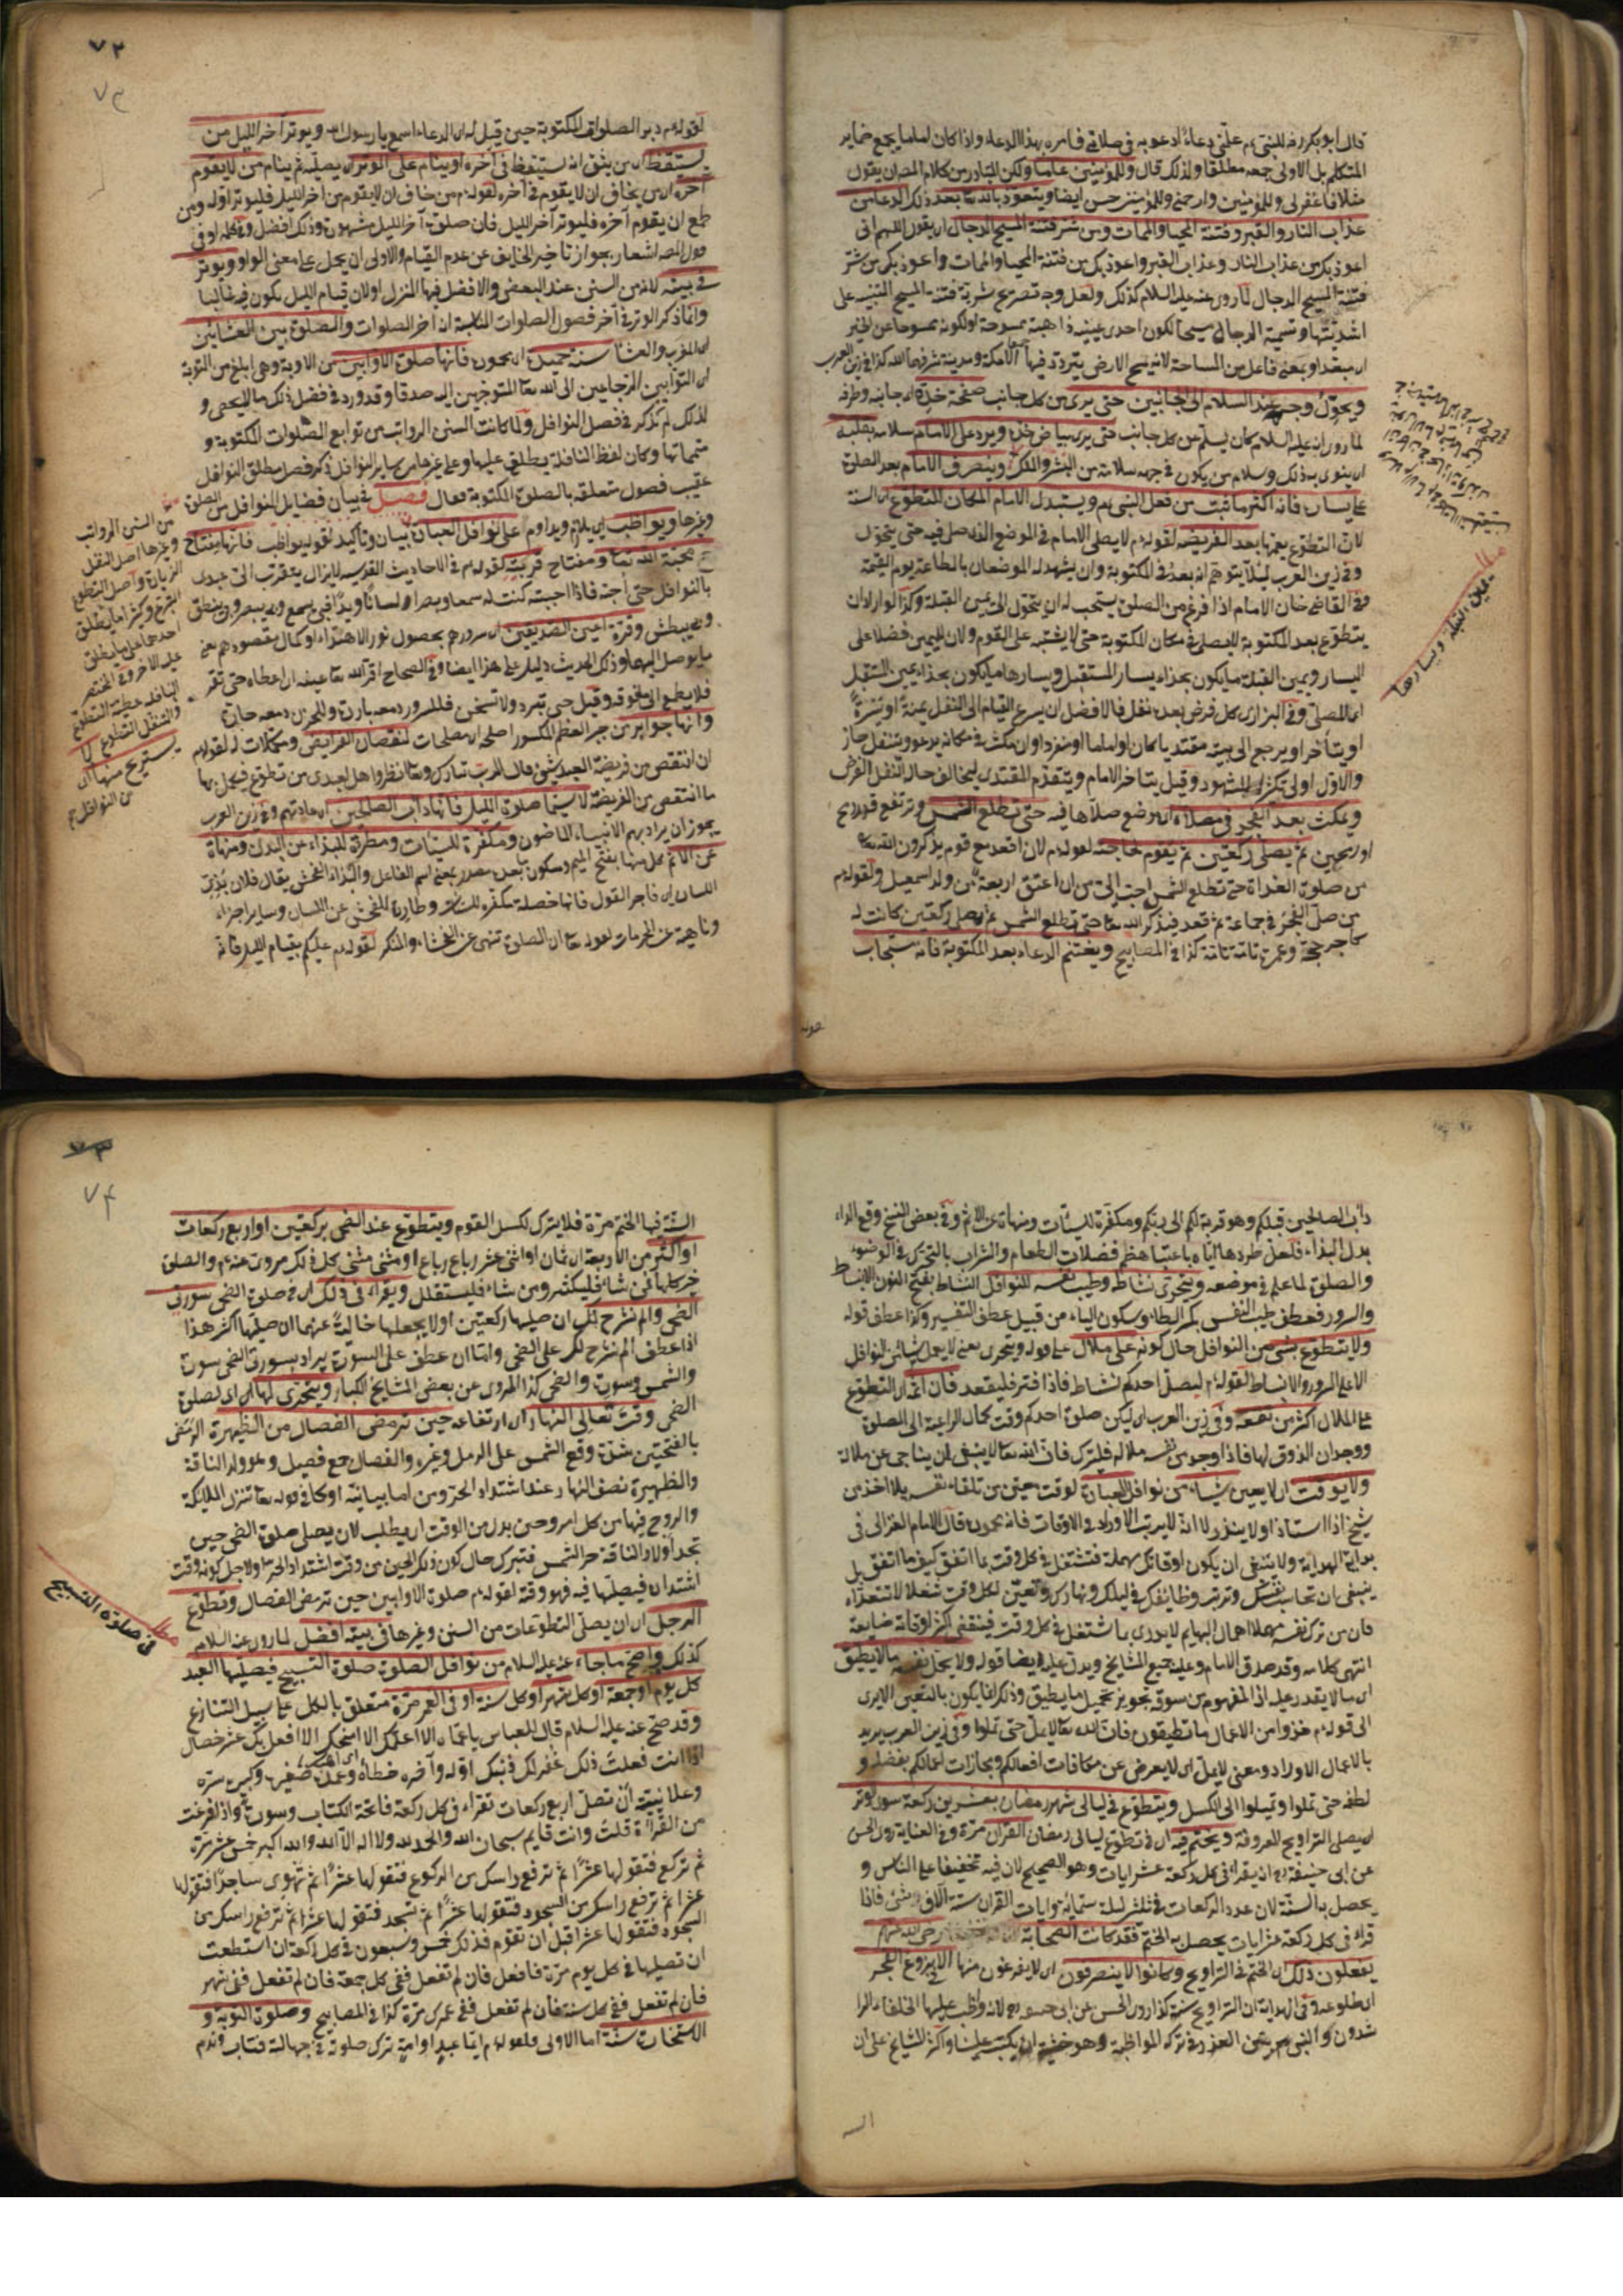 قال ابو بكر رضه للنبى عم علّمنى دعاء ادعو به فى صلاتى فامره بهذا الدعاء واذا كان اماما يجمع ضمائر
المتكلم بل الاولى جمعه مطلقا ولذلك قال وللمؤمنين عامّا ولكن المتبادر من كلام المص ان يقول
مثلا فاغفر لى وللمؤمنين وارحمنى وللمؤمنين حسن ايضا ويتعوذ بالله تعا بعد ذلك الدعاء من
عذاب النار والقبر وفتنة المحيا والممات ومن شر فتنة المسيح الدجال اى يقول اللهم انى
اعوذ بك من عذاب النار وعذاب القبر واعوذ بك من فتنة المحيا والممات واعوذ بك من شر
فتنة المسيح الدجال لما روى عنه عليه السلام كذلك ولعل وجه تصريح شرية فتنة المسيح التنبيه على
اشديتها وتسمية الدجال مسيحا لكون احدى عينيه ذاهبة ممسوحة او لكونه ممسوحا عن الخير
اى مبعد او بمعنى فاعل من المساحة لانه يمسح الارض يتردد فيها الا مكة ومدينة شرفهما الله كذا فى زين العرب
ويحوّل وجهه عند السلام الى الجانبين حتى يرى من كل جانب صفحة خدّه اى جانبه وطرفه
لما روى انه عليه السلام كان يسلّم عن كل جانب حتى يرى بياض خدّه ويرد على الامام سلامه بقلبه
اى ينوى بذلك وسلام من يكون فى جهة سلامه من البشر والملك وينصرف الامام بعد الصلوة
على يساره فانه اكثر ما ثبت من فعل النبى عم ويستبدل الامام المكان للتطوع اى السنة
لان التطوع يعمها بعد الفريضة لقوله عم لا يصلى الامام فى الموضع الذى صلى فيه حتى يتحول
وفى زين العرب لئلا يتوهم انه بعد فى المكتوبة وان يشهد له الموضعان بالطاعة يوم القيمة
وفى القاضى خان الامام اذا فرغ من الصلوة يستحب له ان يتحول الى يمين القبلة وكذا لو اراد ان
يتطوع بعد المكتوبة لا يصلى فى مكان المكتوبة حتى لا يشتبه على القوم ولان لليمين فضلا على
اليسار ويمين القبلة ما يكون بحذاء يسار المستقبل ويسارها ما يكون بحذاء يمين المستقبل
اى المصلّى وفى البزازى كل فرض بعده نفل فالافضل ان يسرع القيام الى النفل يمنة او يسرةً
او يتأخر او يرجع الى بيته مقتديا كان او اماما او منفردا وان مكث فى مكانه يدعو وتنفل جاز
والاول اولى لتكثر الشهود وقيل يتأخر الامام ويتقدم المقتدى ليخالف حال النفل الفرض
ويمكث بعد الفجر فى مصلاه اى موضع صلاها فيه حتى تطلع الشمس وترتفع قدر رمح
او رمحين ثم يصلى ركعتين ثم يقوم لحاجته لقوله عم لان اقعد مع قوم يذكرون الله تعا
من صلوة الغداة حتى تطلع الشمس احب الىّ من ان اعتق اربعة من ولد اسمعيل ولقوله عم
من صلّى الفجر فى جماعة ثم قعد فيذكر الله تعا حتى تطلع الشمس ثم يصلى ركعتين كانت له
كاجر حجة وعمرة تامّة تامّة كذا فى المصابيح ويغتنم الدعاء بعد المكتوبة فانه مستجاب
مطلب
يمين القبلة ويسارها
٧٢
٧٣
لقوله عم دبر الصلوات المكتوبة حين قيل له اى الدعاء اسمع يا رسول الله ويوتر آخر الليل من
يستيقظ اى من يثق انه يستيقظ فى آخره او ينام على الوتر اى يصلّيه ثم ينام من لا يقوم
آخره اى من يخاف ان لا يقوم فى آخره لقوله عم من خاف ان لا يقوم من اخر الليل فليوتر اوّله ومن
طمع ان يقوم آخره فليوتر آخر الليل فان صلوة آخر الليل مشهودة وذلك افضل وفى كلمة او فى
قول المص اشعار بجواز تأخير الخايف عن عدم القيام والاولى ان يحمل على معنى الواو ويوتر
فى بيته لانه من السنن عند البعض والافضل فيها المنزل او لان قيام الليل يكون فيه غالبا
وانما ذكر الوتر فى آخر فصول الصلوات الثابتة اذ آخر الصلوات والصلوة بين العشائين
اى المغرب والعشا سنة جميلة اى محمودة فانها صلوة الاوابين من الاوبة وهى ابلغ من التوبة
اى التوابين الرجاعين الى الله تعا المتوجهين اليه صدقا وقد ورد فى فضل ذلك ما لا يحصى و
لذلك لم يذكر فى فصل النوافل ولما كانت السنن الرواتب من توابع الصلوات المكتوبة و
متمماتها وكان لفظ النافلة يطلق عليها وعلى غيرها من ساير النوافل ذكر فصل مطلق النوافل
عقيب فصول متعلقة بالصلوة المكتوبة فقال فصل فى بيان فضايل النوافل من الصلوة
وغيرها ويواظب اى يلازم ويداوم على نوافل العبادة بيان وتأكيد لقوله يواظب فانها مفتاح
محبة الله تعا ومفتاح قربته لقوله عم فى الاحاديث القدسية لا يزال يتقرب الىّ عبدى
بالنوافل حتى احبّه فاذا احببته كنت له سمعا وبصرا ولسانا ويدًا فبى يسمع وبى يبصر وبى ينطق
وبى يبطش وقرّة اعين الصديقين اى سرورهم بحصول نور الاهتداء او كمال مقصودهم بمعنى
ما يوصل اليهما وذلك الحديث دليل على هذا ايضا وفى الصحاح اقرّ الله تعا عينه اى اعطاه حتى تقر
فلا يطمح الى ما فوقه وقيل حتى تبرد ولا تسخن فللسرور دمعة باردة وللحزن دمعة حارة
وانها جوابر من جبر العظم المكسور اصلحه اى مصلحات لنقصان الفرايض ومكملات له لقوله عم
ان انتقص من فريضة العبد شئ قال الرب تبارك وتعا انظروا هل لعبدى من تطوع فيكمل بها
ما انتقص من الفريضة لا سيما صلوة الليل فانها دأب الصالحين اى عادتهم وفى زين العرب
يجوز ان يراد بهم الانبياء الماضون ومكفرة للسيئات ومطردة للبذاء عن البدن ومنهاة
عن الاثم كل منها بفتح الميم وسكون ما بعده مصدر بمعنى اسم الفاعل والبذاء الفحش يقال فلان بذى
اللسان اى فاجر القول فانها خصلة مكفرة للسيئات وطاردة للفحش عن اللسان وساير اجزاء
وناهية عن المحرمات لقوله تعا ان الصلوة تنهى عن الفحشاء والمنكر لقوله عم عليكم بقيام الليل فانه
من السنن الرواتب
وغيرها اصل النفل
الزيادة واصل التطوع
التبرع وكثيرا ما يطلق
احدهما على ما يطلق
عليه الاخر وفى المختصر
النافلة عطية التطوع
والنفل التطوع
دأب الصالحين قبلكم وهو قربة لكم الى ربكم ومكفرة للسيئات ومنهاة عن الاثم وفى بعض النسخ وقع الداء
بدل البذاء فلعل طردها اياه باعتبار هضم فضلات الطعام والشراب بالتحرك فى الوضوء
والصلوة لما علم فى موضعه ويتحرى نشاطه وطيب نفسه للنوافل النشاط بفتح النون الانبساط
والسرور فعطف طيب النفس بكسر الطاء وسكون الياء من قبيل عطف التفسير وكذا عطف قوله
ولا يتطوع بشئ من النوافل حال كونه على ملال على قوله ويتحرى بمعنى لا يعمل شيئا من النوافل
الا على السرور والانبساط لقوله عم ليصل احدكم نشاطه فاذا فتر فليقعد فان اثم التطوع
على الملال اكثر من نفعه وفى زين العرب اى ليكن صلوة احدكم وقت كمال الراغبة الى الصلوة
ووجدان الذوق لها فاذا وجد من نفسه ملالة فليترك فان الله تعا لا ينبغى ان يناجى عن ملالة
ولا يوقت اى لا يعين شيأ من نوافل العبادة لوقت معين من تلقاء نفسه بلا اخذ من
شيخ اذا استاذ او لا ينذر لا انه لا يرتب الاوراد فى الاوقات فانه محمود قال الامام الغزالى فى
بداية الهداية ولا ينبغى ان يكون اوقاتك مهملة فتشتغل فى كل وقت بما اتفق كيف ما اتفق بل
ينبغى ان تحاسب نفسك وترتب وظايفك فى ليلك ونهارك وتعين لكل وقت شغلا لا تتعداه
فان من ترك نفسه مهملا اهمال البهايم لا يدرى بما شتغل فى كل وقت فينقضى اكثر اوقاته ضايعة
انتهى كلامه وقد صدق الامام وعليه جميع المشايخ ويدل عليه ايضا قوله ولا يحمل نفسه ما لا يطيق
اى ما لا يقدر عليه اذ المفهوم من سوقه تجويز تحميل ما يطيق وذلك انما يكون بالتعيين الا يرى
الى قوله عم خذوا من الاعمال ما تطيقون فان الله تعا لا يملّ حتى تملوا وفى زين العرب يريد
بالاعمال الاوراد ومعنى لا يمل اى لا يعرض عن مكافات افعالكم ومجازات اعمالكم بفضله و
لطفه حتى تملوا وتميلوا الى الكسل ويتطوع فى ليالى شهر رمضان بعشرين ركعة سوى الوتر
اى يصلى التراويح المعروفة ويختم فيه اى فى تطوع ليالى رمضان القرآن مرة وفى العناية روى الحسن
عن ابى حنيفة رح انه يقرأ فى كل ركعة عشر ايات وهو الصحيح لان فيه تخفيفا على الناس و
يحصل به السنة لان عدد الركعات فى ثلثين ليلة ستماية وايات القران ستة آلاف وشئ فاذا
قراء فى كل ركعة عشر ايات يحصل به الختم فقد كانت الصحابة رضى الله عنهم
يفعلون ذلك اى الختم فى التراويح وكانوا لا ينصرفون اى لا يفرغون منها الا فى بزوغ الفجر
اى طلوعه وفى الهداية ان التراويح سنة كذا روى الحسن عن ابى حنيفة رح لانه واظب عليها الخلفاء الرا
شدون والنبى عم بين العذر فى تركه المواظبة وهو خشية ان يكتب علينا واكثر المشايخ على ان
السـ
٧٣
٧٤
السنة فيها الختم مرّة فلا يترك لكسل القوم ويتطوع عند الضحى بركعتين او اربع ركعات
او اكثر من الاربعة اى ثمان او اثنى عشر رباع رباع او مثنى مثنى كل ذلك مروى عنه عم والصلوة
خير كلها فمن شاء فليكثر ومن شاء فليستقلل ويقراء فى ذلك اى فى صلوة الضحى سورتى
الضحى والم نشرح لك ان صليها ركعتين او لا يجعلها خالية عنهما ان صليها اكثر هذا
اذا عطف الم نشرح لك على الضحى وامّا ان عطف على السورة يراد بسورتى الضحى سورة
والشمس وسورة والضحى كذا المروى عن بعض المشايخ الكبار ويتحرى لها اى لصلوة
الضحى وقت تعالى النهار اى ارتفاعه حين ترمض الفصال من الظهيرة الرمض
بالفتحتين شدّة وقع الشمس على الرمل وغيره والفصال جمع فصيل وهو ولد الناقة
والظهيرة نصف النهار عند اشتداد الحر ومن اما بيانية او كما فى قوله تعا تنزل الملائكة
والروح فيها من كل امر وحين بدل من الوقت اى يطلب لان يصلى صلوة الضحى حين
تجد اولاد الناقة حر الشمس فتبرك حال كون ذلك الحين من وقت اشتداد الحر ولاجل كونه وقت
اشتداده فيصلّيها فيه فهو وقته لقوله عم صلوة الاوابين حين ترمض الفصال وتطوع
الرجل اى ان يصلى التطوعات من السنن وغيرها فى بيته افضل لما روى عنه السلام
كذلك واصح ما جاء عنه عليه السلام من نوافل الصلوة صلوة التسبيح فيصليها العبد
كل يوم او جمعة او كل شهر او كل سنة او فى العمر مرّة متعلق بالكل على سبيل التنازع
وقد صح عنه عليه السلام قال للعباس يا عمّاه الا اعلمك الا امنحك الا افعل بك عشر خصال
اذا انت فعلت ذلك غفر لك ذنبك اوله وآخره خطأه وعمده صغيره وكبيره سره
وعلانيته أن تصلّى اربع ركعات تقراء فى كل ركعة فاتحة الكتاب وسورة واذا فرغت
من القراءة قلت وانت قايم سبحان الله والحمد لله ولا اله الا الله والله اكبر خمس عشر مرّة
ثم تركع فتقولها عشرًا ثم ترفع راسك من الركوع فتقولها عشرًا ثم تهوى ساجدًا فتقولها
عشرا ثم ترفع راسك من السجود فتقولها عشرًا ثم تسجد فتقولها عشرا ثم ترفع راسك من
السجود فتقولها عشرا قبل ان تقوم فذلك خمس وسبعون فى كل ركعة ان استطعت
ان تصليها فى كل يوم مرّة فافعل فان لم تفعل ففى كل جمعة فان لم تفعل ففى شهر
فان لم تفعل ففى كل سنة فان لم تفعل ففى عمرك مرّة كذا فى المصابيح وصلوة التوبة و
الاستخارة سنّة اما الاولى فلقوله عم ايّما عبد او امة ترك صلوته فى جهالة فتاب وندم
مطلب
فى صلوة التسبيح